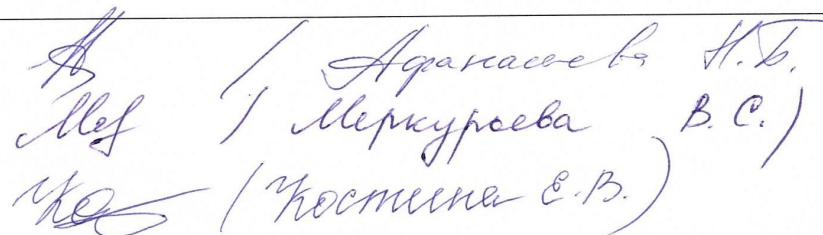 / Афанасьева Н.Б.
/ Меркурьева В.С.)
(Костина Е.В.)